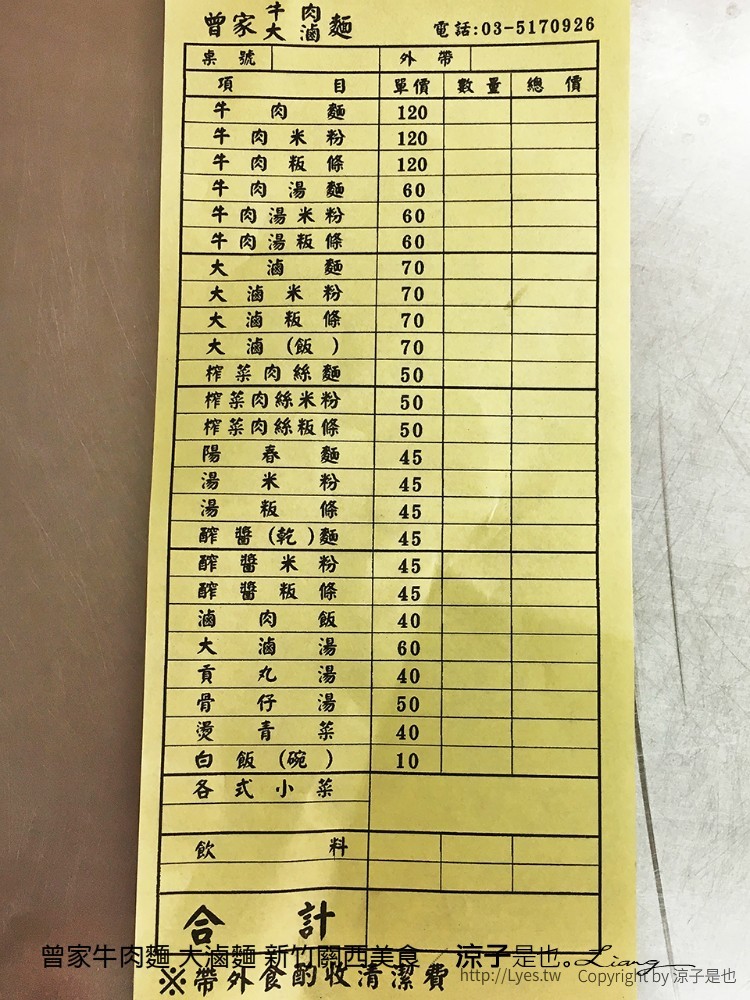 曾家牛肉大滷麵 電話:03-5170926
桌號 外帶
項目 單價 數量 總價
牛肉麵 120
牛肉米粉 120
牛肉粄條 120
牛肉湯麵 60
牛肉湯米粉 60
牛肉湯粄條 60
大滷麵 70
大滷米粉 70
大滷粄條 70
大滷(飯) 70
榨菜肉絲麵 50
榨菜肉絲米粉 50
榨菜肉絲粄條 50
陽春麵 45
湯米粉 45
湯粄條 45
醡醬(乾)麵 45
醡醬米粉 45
醡醬粄條 45
滷肉飯 40
大滷湯 60
貢丸湯 40
骨仔湯 50
燙青菜 40
白飯(碗) 10
各式小菜
飲料
合計
曾家牛肉麵 大滷麵 新竹關西美食 涼子是也。Liang
http://Lyes.tw Copyright by 涼子是也
※帶外食酌收清潔費